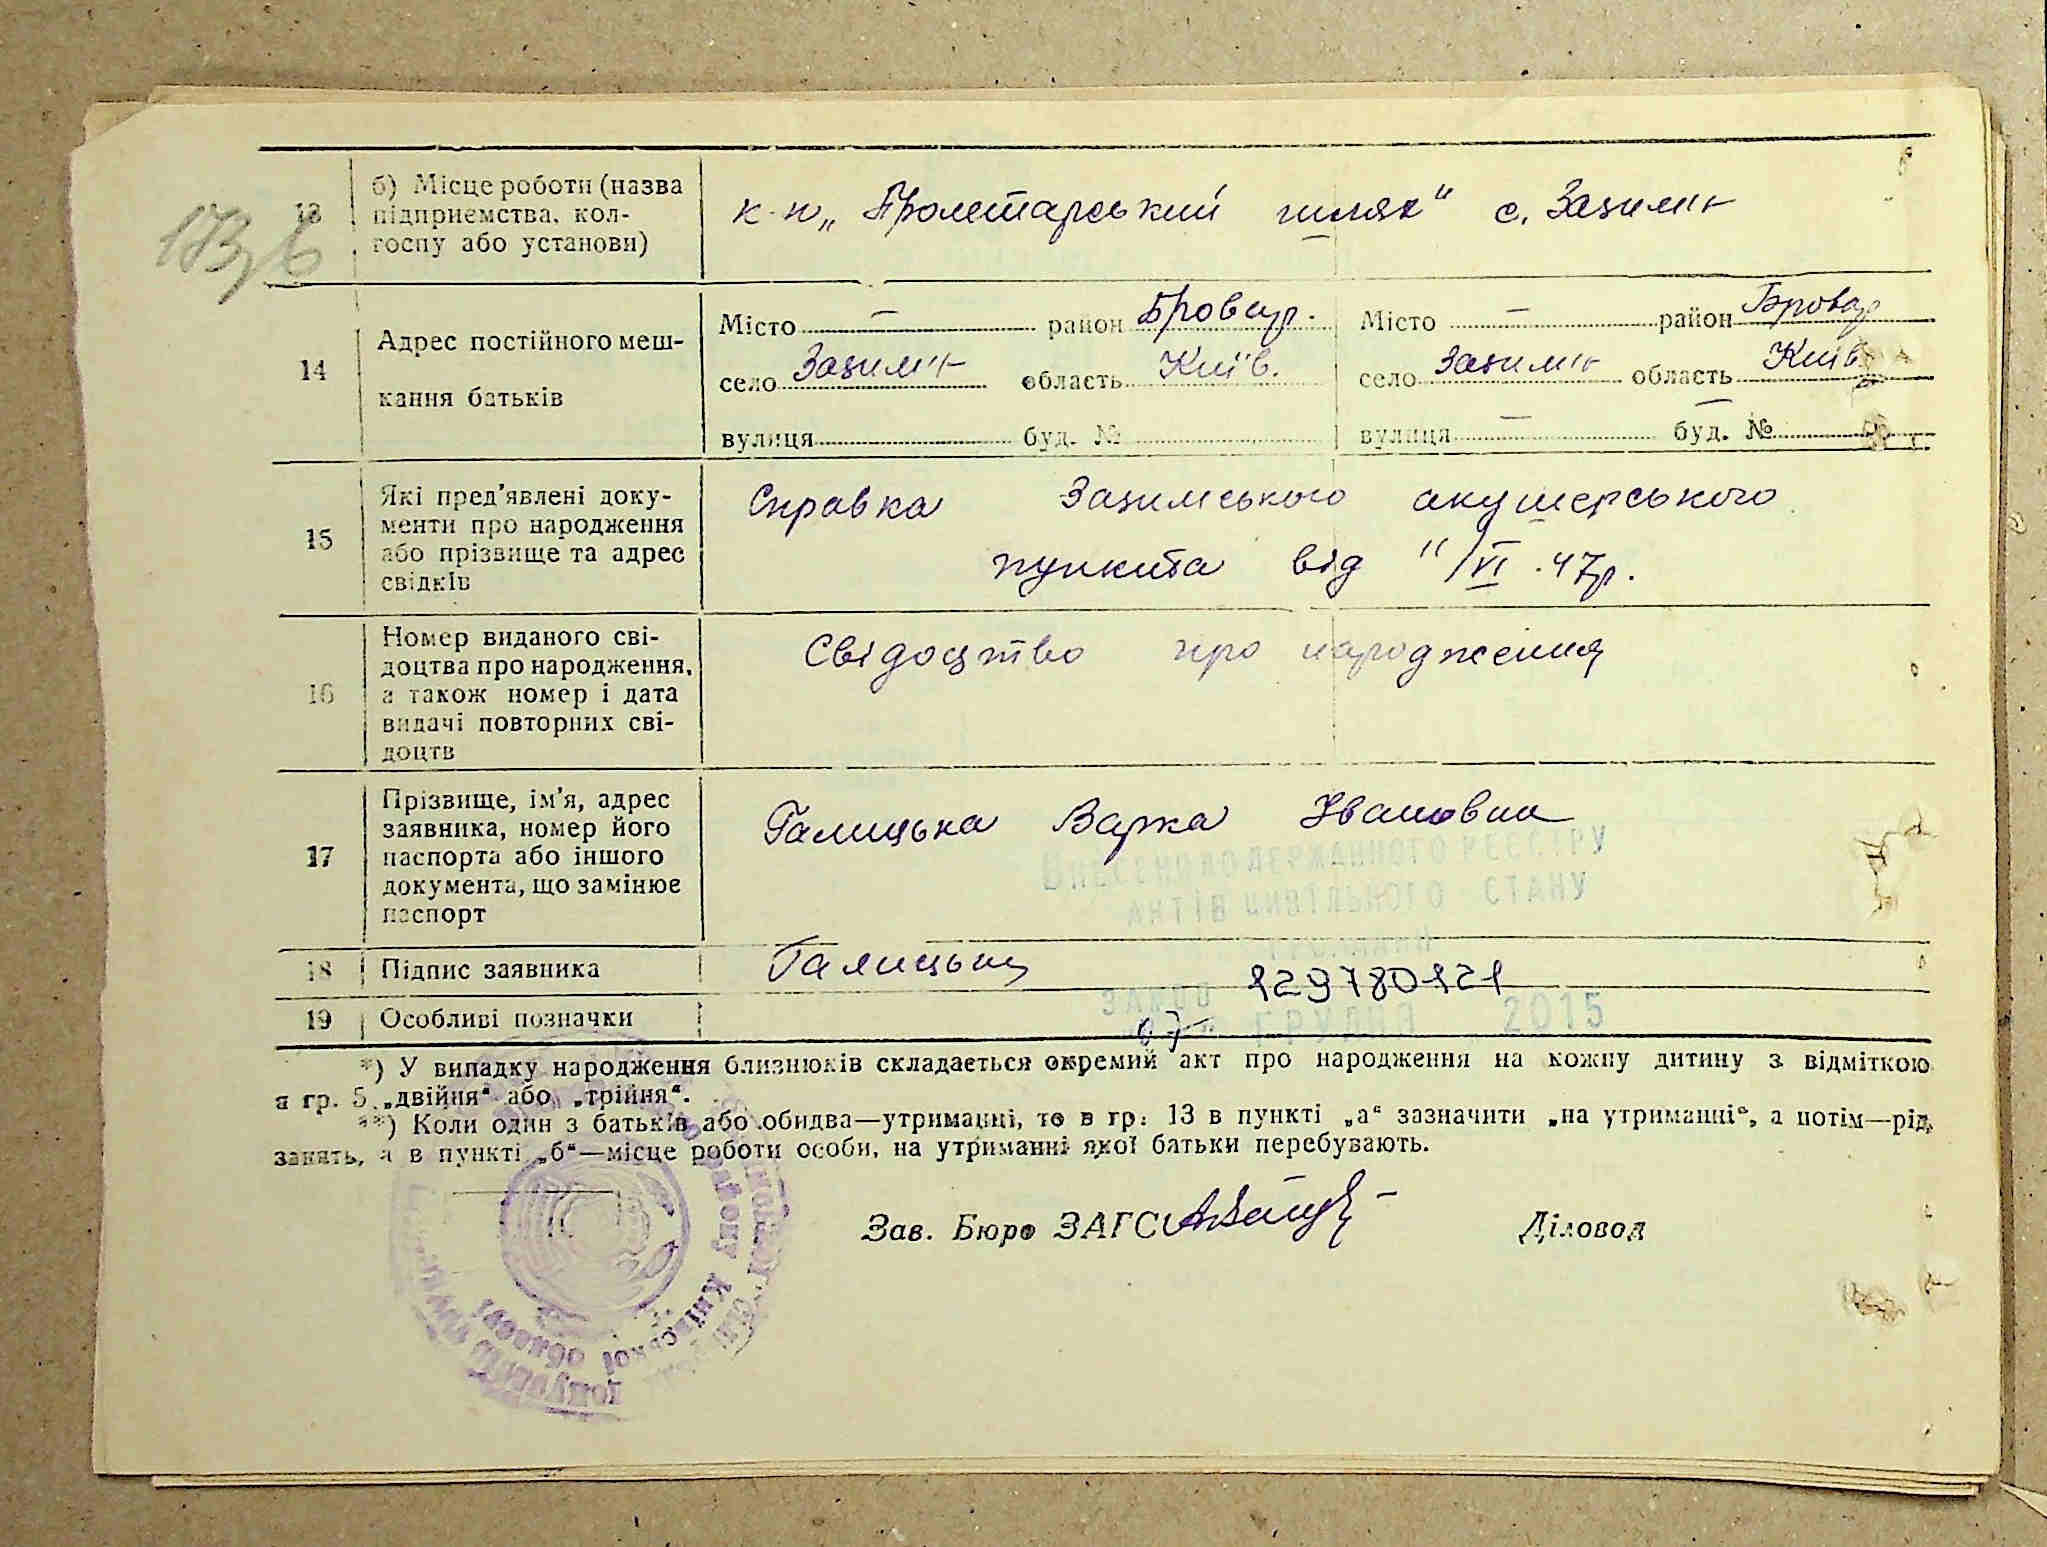 173, б
13 б) Місце роботи (назва
підприємства, кол-
госпу або установи)
к-п „Пролетарський шлях" с. Зазим'я
14 Адрес постійного меш-
кання батьків
Місто — район Бровар. Місто — район Бровар
село Зазим'я область Київ. село Зазим'я область Київ
вулиця буд. № вулиця — буд. № —
15 Які пред'явлені доку-
менти про народження
або прізвище та адрес
свідків
Справка Зазимського акушерського
пункта від "/VI .47р.
16 Номер виданого сві-
доцтва про народження,
а також номер і дата
видачі повторних сві-
доцтв
Свідоцтво про народження
17 Прізвище, ім'я, адрес
заявника, номер його
паспорта або іншого
документа, що замінює
паспорт
Галицька Варка Івановна
ВНЕСЕНО ДО ДЕРЖАВНОГО РЕЄСТРУ
АКТІВ ЦИВІЛЬНОГО СТАНУ
ГРОМАДЯН
18 Підпис заявника Галицька
ЗА № 00 129780121
19 Особливі позначки
07 ГРУДНЯ 2015
*) У випадку народження близнюків складається окремий акт про народження на кожну дитину з відміткою
в гр. 5 „двійня" або „трійня".
**) Коли один з батьків або обидва—утриманці, то в гр. 13 в пункті „а" зазначити „на утриманні", а потім—рід
занять, а в пункті „б"—місце роботи особи, на утриманні якої батьки перебувають.
Зав. Бюро ЗАГС Діловод
району Київської області